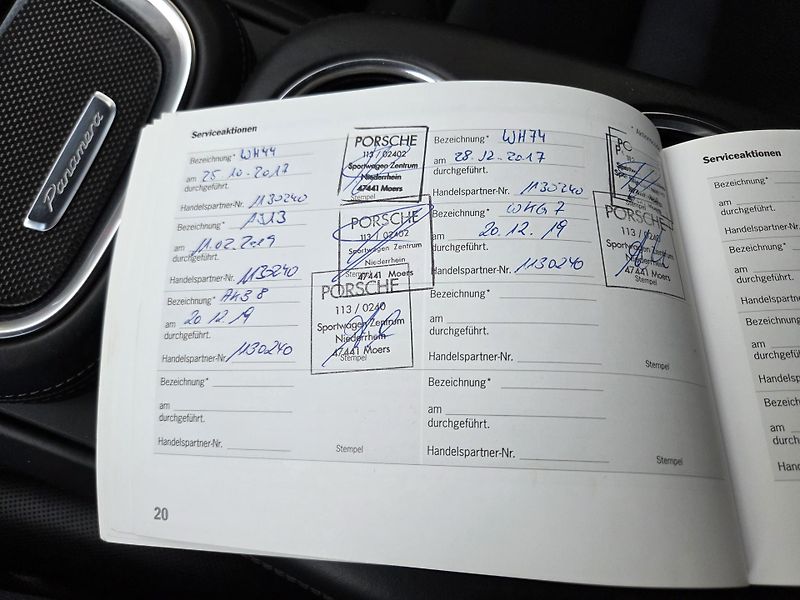 Panamera
Serviceaktionen
Bezeichnung* WH44
am 25.10.2017
durchgeführt.
Handelspartner-Nr. 1130240
PORSCHE
113 / 02402
Sportwagen Zentrum
Niederrhein
47441 Moers
Stempel
Bezeichnung* WH74
am 28.12.2017
durchgeführt.
Handelspartner-Nr. 1130240
Bezeichnung*
am 11.02.2019
durchgeführt.
Handelspartner-Nr. 1130240
PORSCHE
113 / 02402
Sportwagen Zentrum
Niederrhein
47441 Moers
Bezeichnung* WKG7
am 20.12.19
durchgeführt.
Handelspartner-Nr. 1130240
PORSCHE
Sportwagen Zentrum
Niederrhein
47441 Moers
Stempel
Bezeichnung*
am 20.12.19
durchgeführt.
Handelspartner-Nr. 1130240
PORSCHE
113 / 0240
Sportwagen Zentrum
Niederrhein
47441 Moers
Stempel
Bezeichnung*
am
durchgeführt.
Handelspartner-Nr.
Stempel
Bezeichnung*
am
durchgeführt.
Handelspartner-Nr.
Stempel
Bezeichnung*
am
durchgeführt.
Handelspartner-Nr.
Stempel
20
Serviceaktionen
am
durchgeführt.
am
durchgeführt.
am
durchgeführt.
am
durchgeführt.